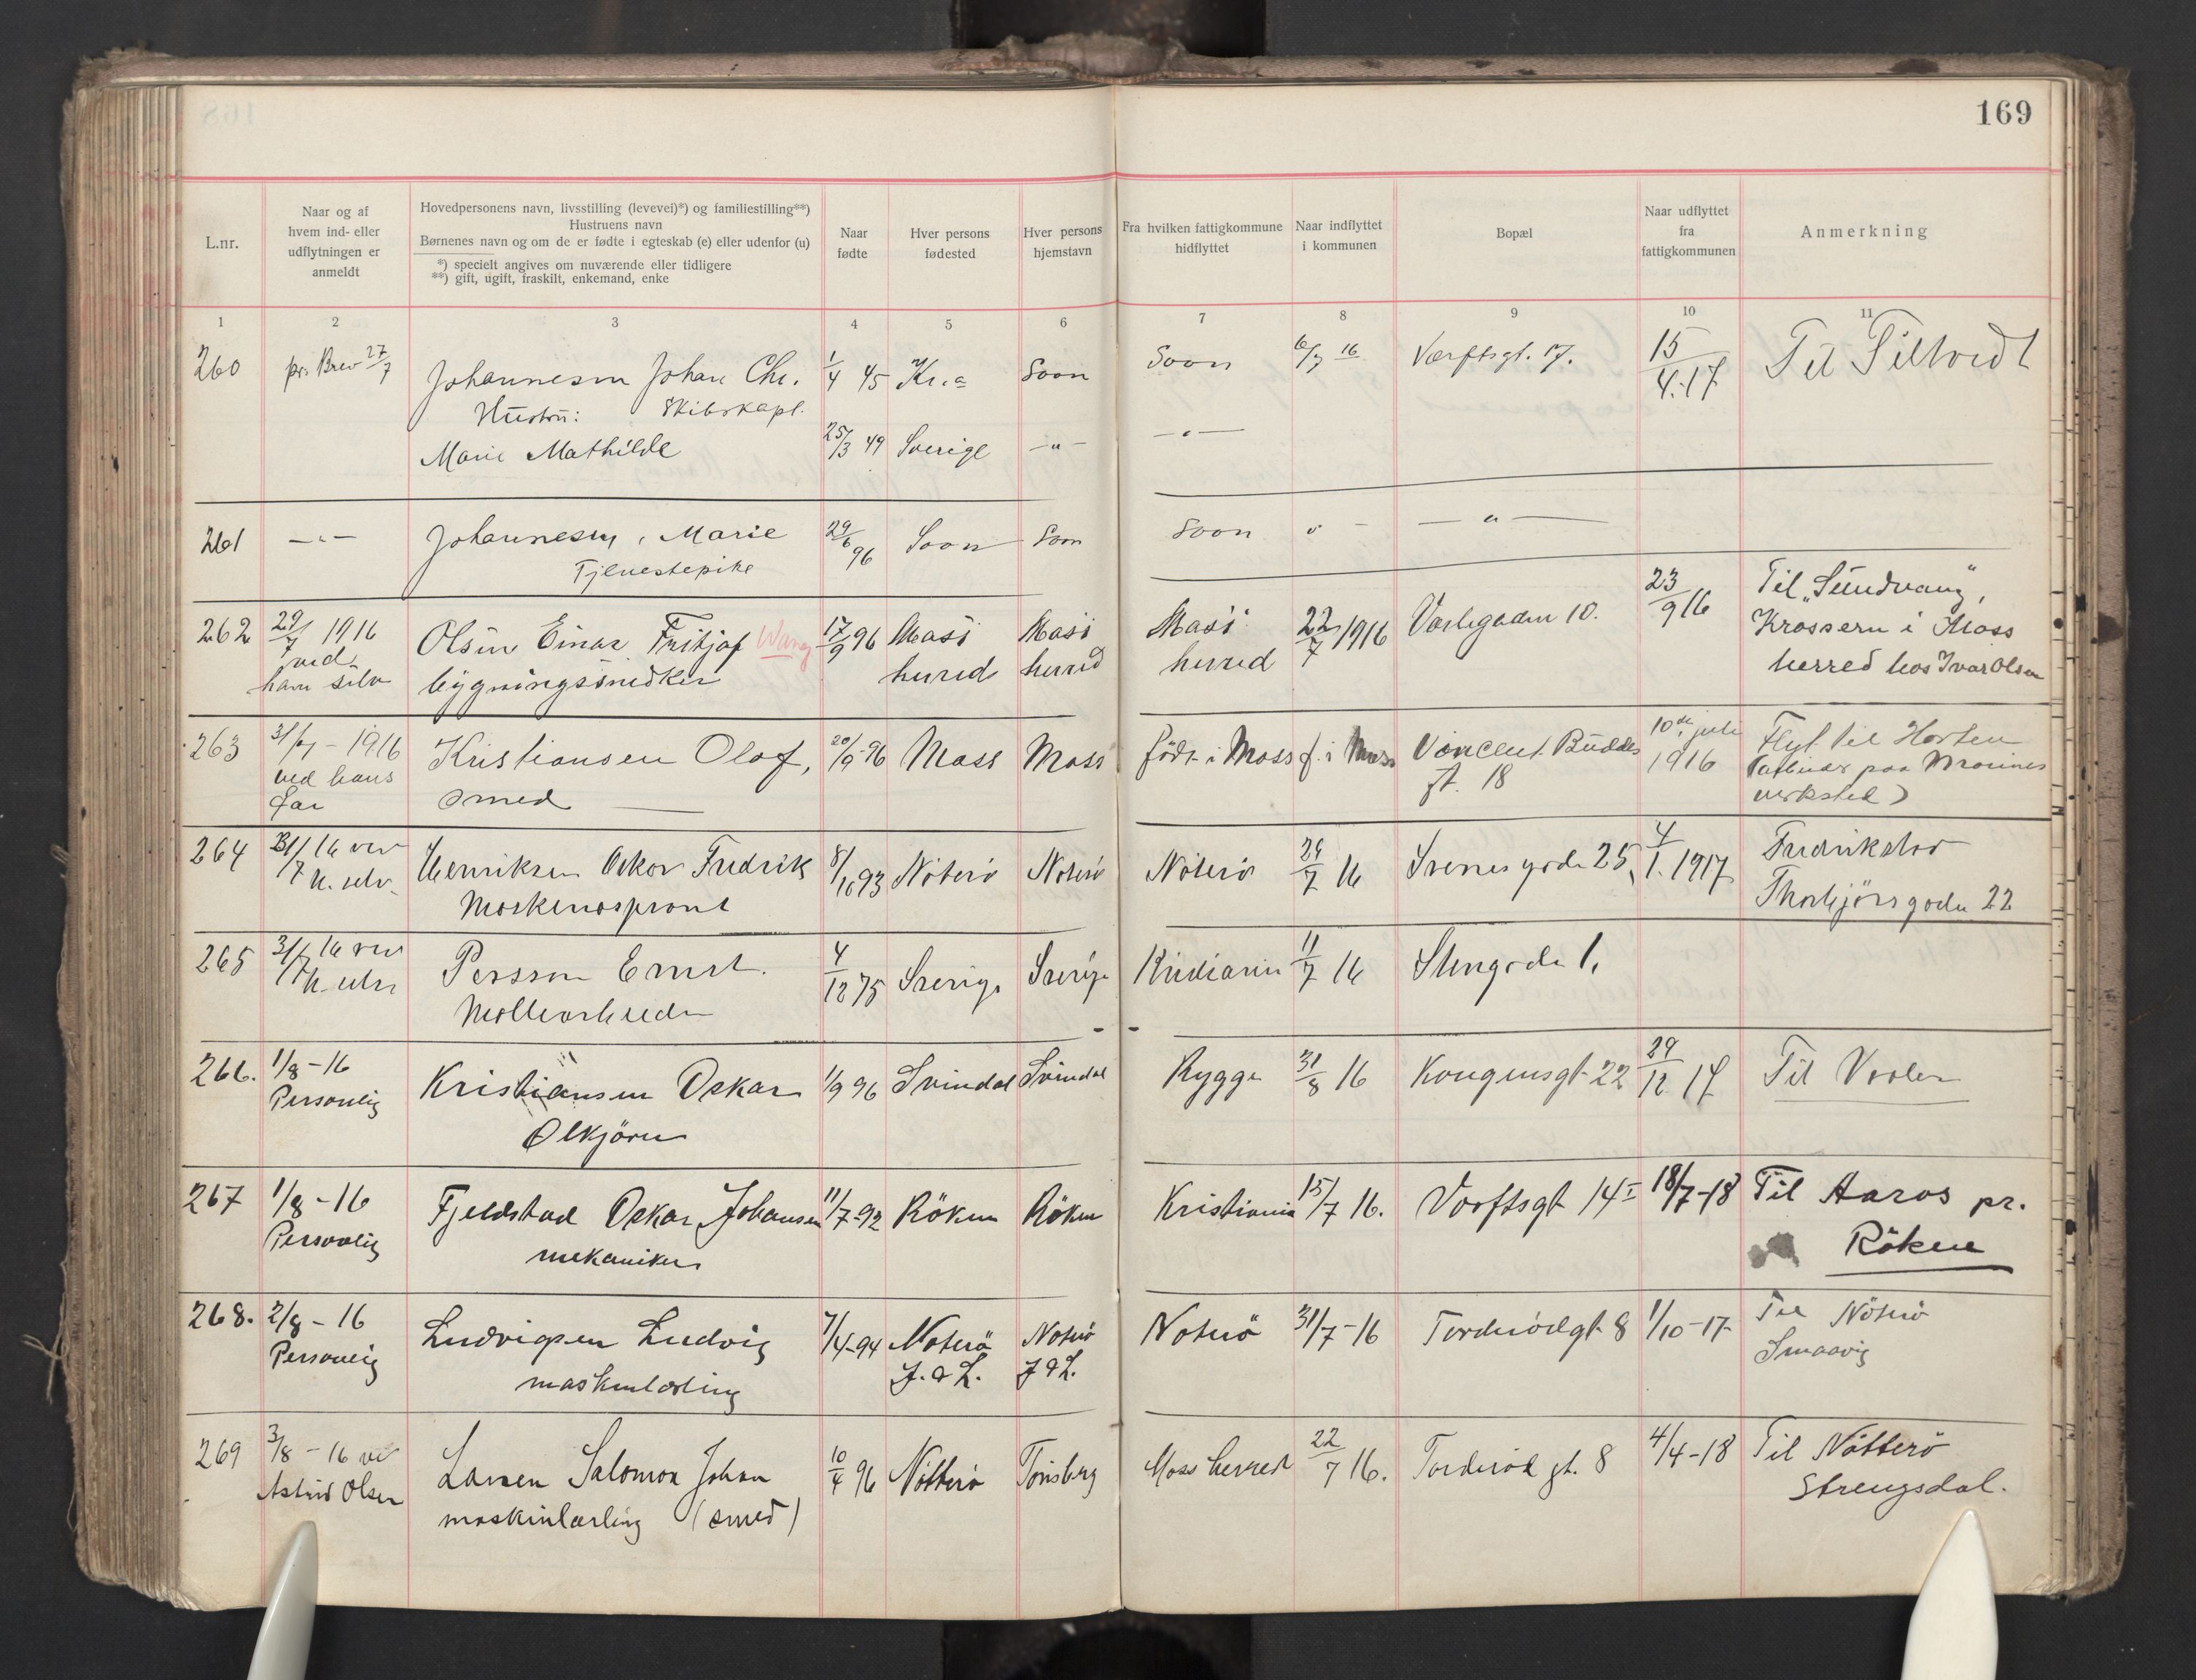 169
L.nr.
Naar og af
hvem ind- eller
udflytningen er
anmeldt
Hovedpersonens navn, livsstilling (levevei)*) og familiestilling**)
Hustruens navn
Børnenes navn og om de er fødte i egteskab (e) eller udenfor (u)
*) specielt angives om nuværende eller tidligere
**) gift, ugift, fraskilt, enkemand, enke
Naar
fødte
Hver persons
fødested
Hver persons
hjemstavn
Fra hvilken fattigkommune
hidflyttet
Naar indflyttet
i kommunen
Bopæl
Naar udflyttet
fra
fattigkommunen
Anmerkning
1 2 3 4 5 6 7 8 9 10 11
260 pr. Brev 27/7 Johannesen Johan Chr. 1/4 45 Kr.a Soon Soon 6/7 16 Værftsgt. 17. 15/4.17 Til
Hustru: Skibskapt.
Marie Mathilde 25/3 49 Sverige —"— —"—
261 —"— Johannesen, Marie 29/6 96 Soon Soon Soon " — —"—
Tjenestepike
262 29/7 1916 Olsen Einar Fritjof Wang 17/9 96 Moss Moss Moss 22/7 1916 Varlegaden 10. 23/9 16 Til "Sundvang",
ved bygningssnedker herred herred herred Krossern i Moss
ham selv herred hos Ivar Olsen
263 31/7 - 1916 Kristiansen Olaf, 20/9 96 Moss Moss født i Moss f. i Moss Vincent Buddes 10de juli Flyt til Horten
ved hans smed gt. 18 1916 (arbeider paa Marines
far verksted)
264 31/7 16 ved Henriksen Oskar Fredrik 8/10 93 Nöterö Nöterö Nöterö 29/7 16 Svenes gade 25, 4/1. 1917 Fredrikstad
h. selv Maskinaspirant Thorbjörs gade 22
265 31/7 16 ved Persson Ernst. 4/12 75 Sverige Sverige Kristiania 11/7 16 Stengade 1,
h. selv Möllearbeider
266. 1/8 - 16 Kristiansen Oskar 1/9 96 Svindal Svindal Rygge 31/8 16 Kongensgt 22 29/12 17 Til Vaaler
Personlig Ölkjörer
267 1/8 - 16 Fjeldstad Oskar Johansen 11/7-92 Röken Röken Kristiania 15/7 16. Værftsgt 14 I 18/7-18 Til Aaros pr.
Personlig mekaniker Röken
268. 2/8 - 16 Ludvigsen Ludvig 7/4-94 Noterö Noterö Noterö 31/7-16 Torderödgt 8 1/10-17 Til Nöterö
Personlig maskinlærling J. & L. J & L. Smaavig
269 3/8 - 16 ved Larsen Salomon Johan 10/4 96 Nötterö Tönsberg Moss herred 22/7 16. Torderöd gt. 8 4/4-18 Til Nötterö
Astrid Olsen maskinlærling (smed) Strengsdal.